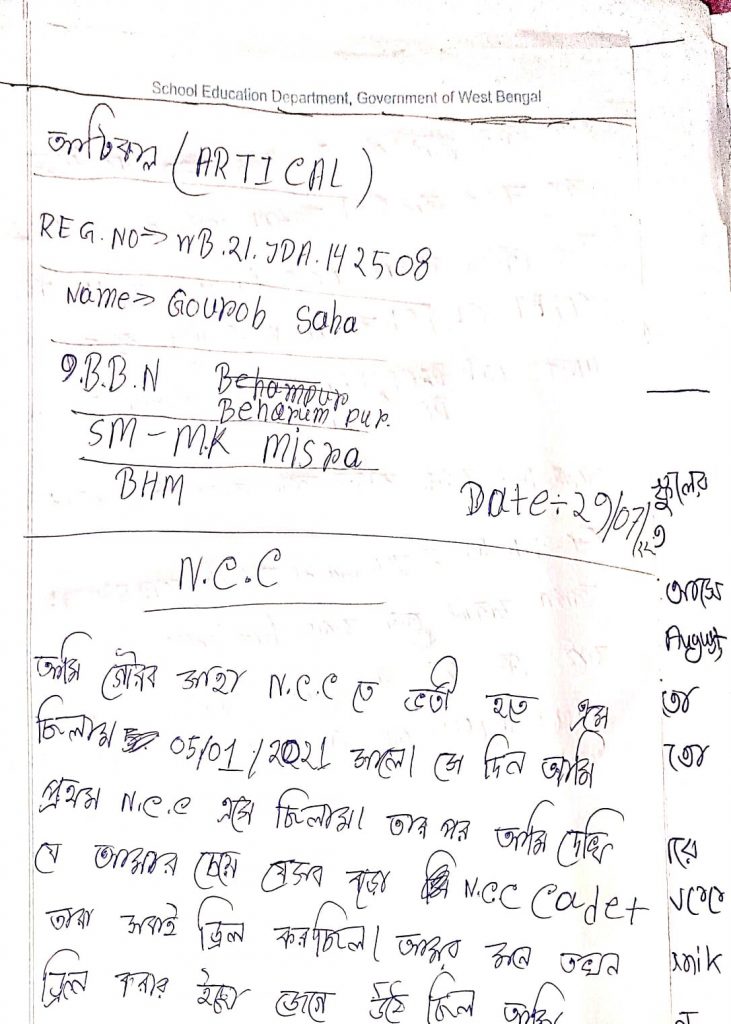 School Education Department, Government of West Bengal
আর্টিকাল (ARTICAL)
REG.NO⇒ WB.21.JDA.142508
Name⇒ Gourob Saha
9.B.B.N Behampur
Beharumpur.
SM – M.K Misra
BHM
Date÷29/07/22
N.C.C
আমি গৌরব সাহা N.C.C তে ভর্তী হতে এসে
ছিলাম 05/01/2021 সালে। সে দিন আমি
প্রথম N.C.C এসে ছিলাম। তার পর আমি দেখি
যে আমার চেয়ে যেসব বড়ো N.C.C Cadet
তারা সবাই ড্রিল করছিল। আমার মনে তখন
ড্রিল করার ইচ্ছে জেগে উঠে ছিল আমি
স্কুলের
ও
আসে
August
তা
তো
রে
mik